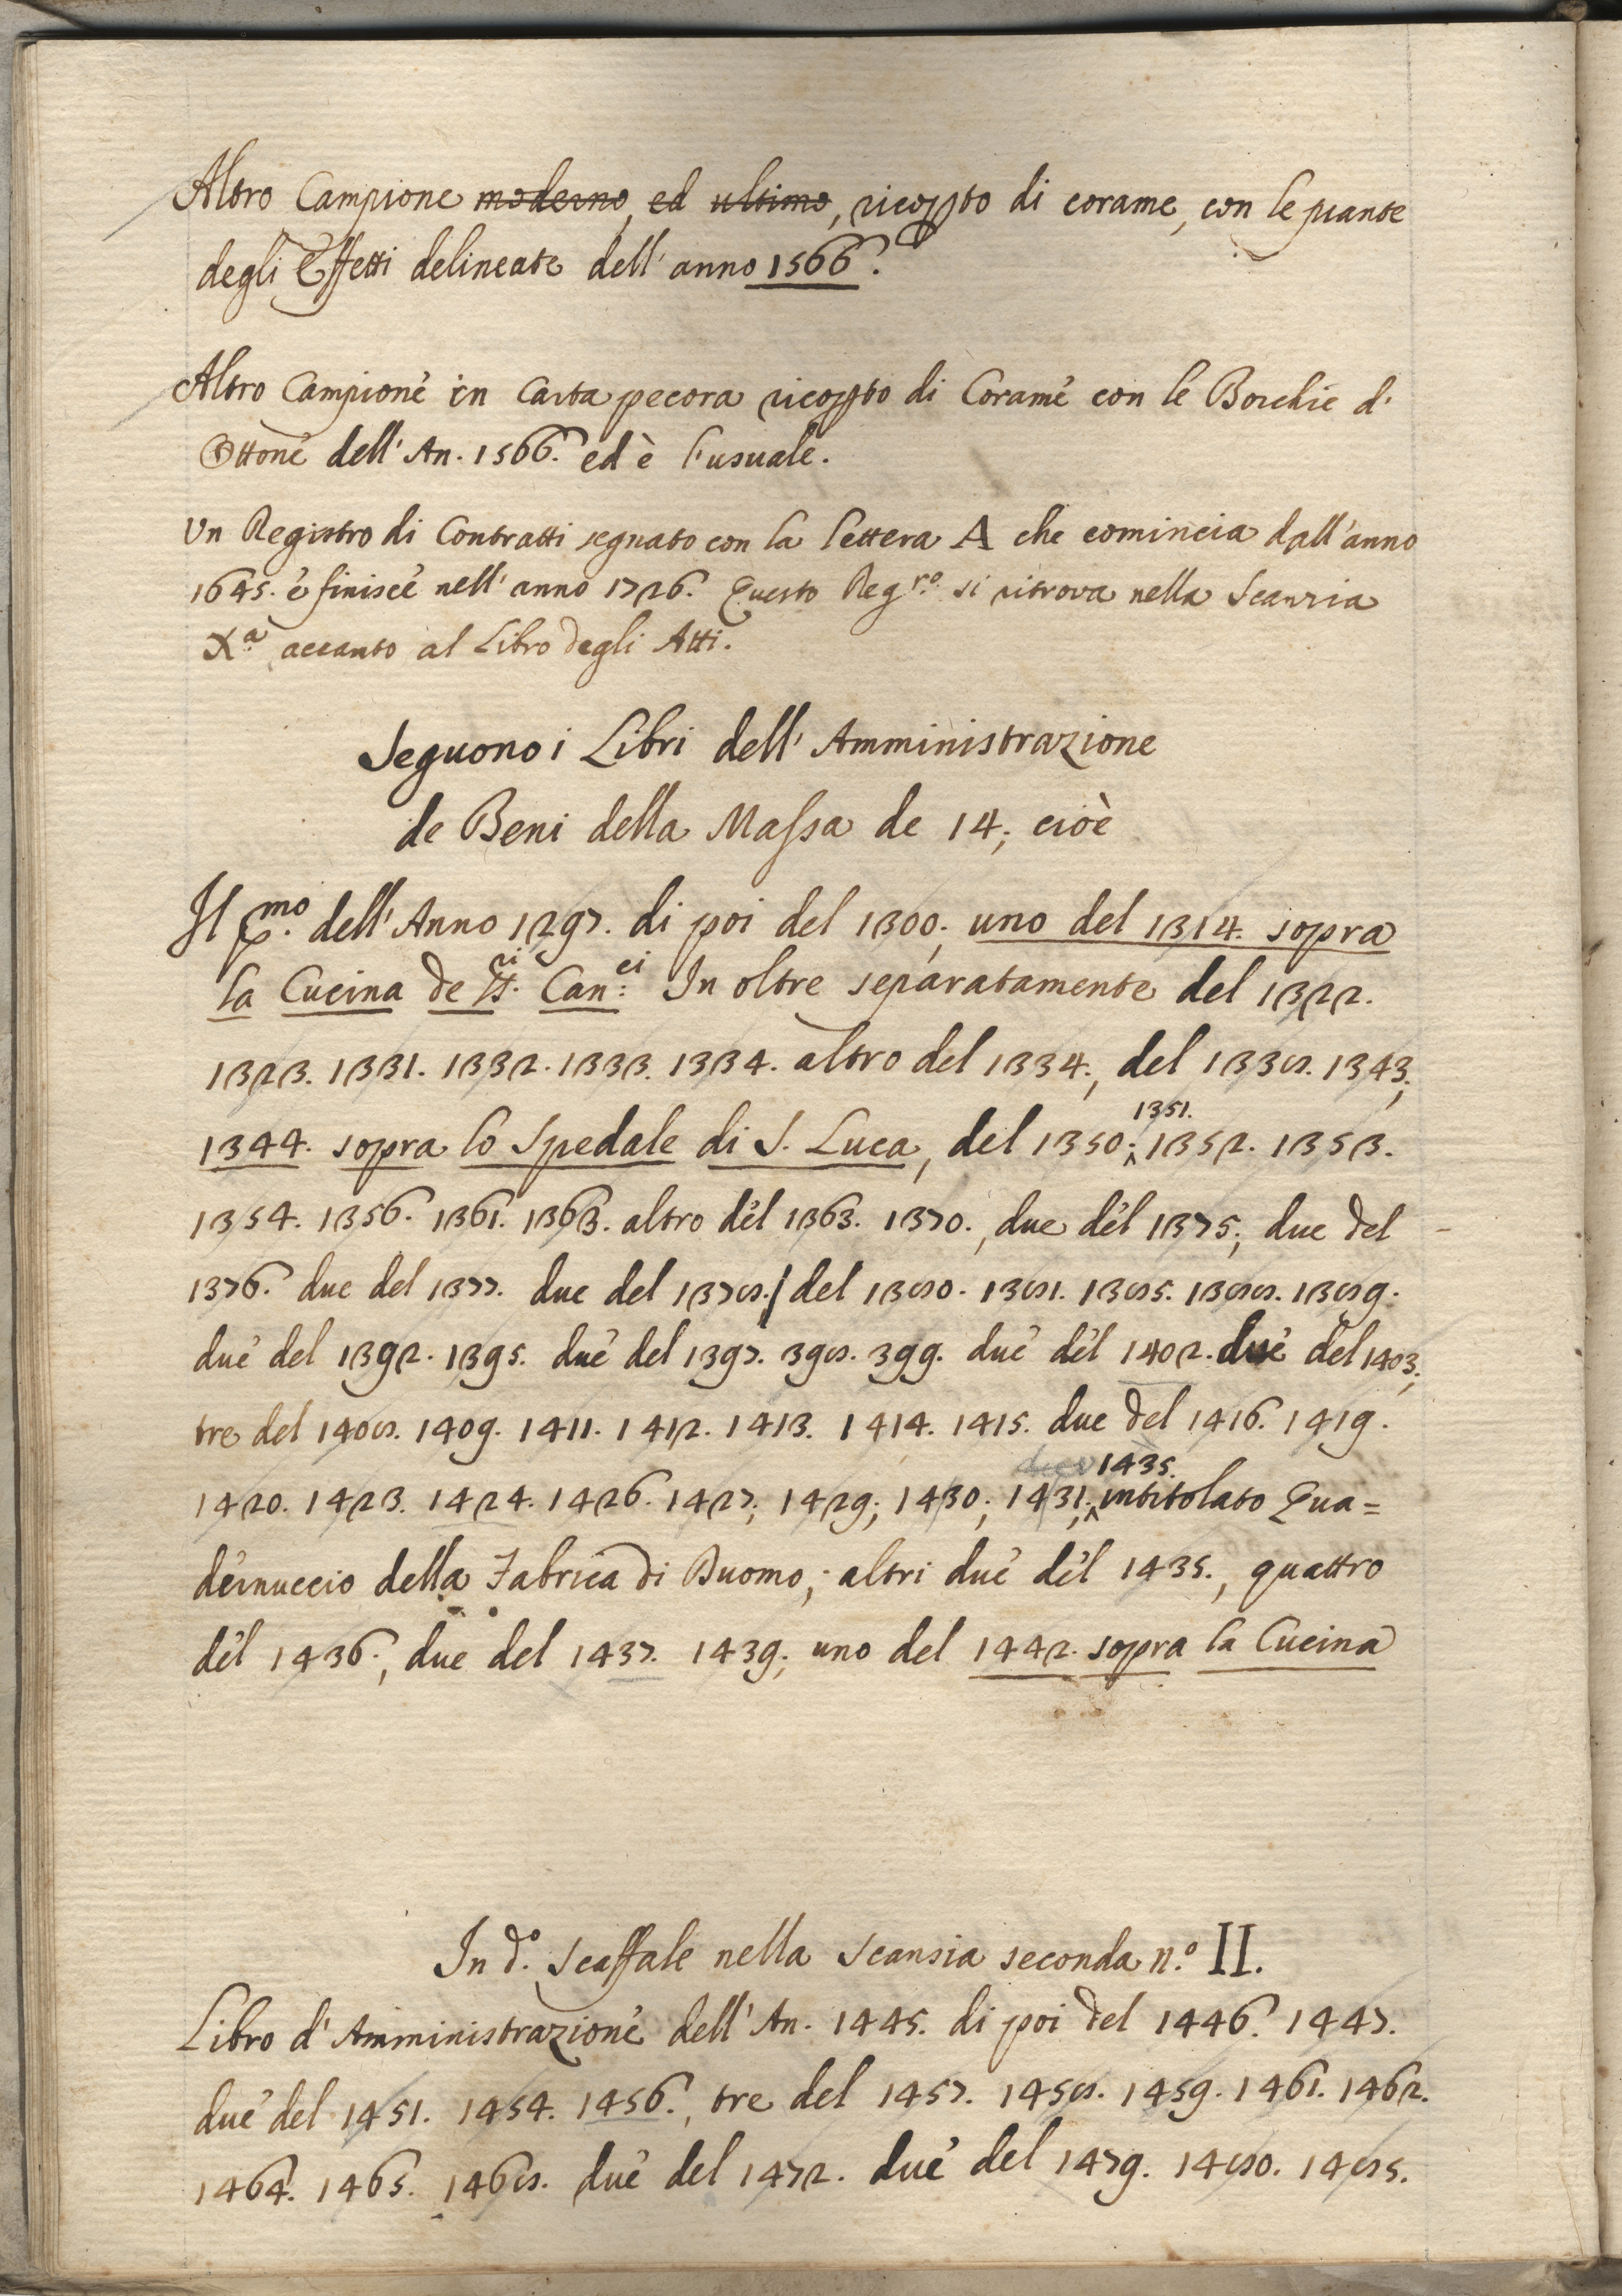 Altro Campione moderno, ed ultimo, ricopto di corame, con le piante
degli Effetti delineate dell' anno 1566.
Altro Campione in Carta pecora ricopto di Corame con le Borchie d'
Ottone dell' An. 1566. ed è l'usuale.
Un Registro di Contratti segnato con la lettera A che comincia dall'anno
1645. e finisce nell' anno 1726. Questo Reg.ro si ritrova nella Scanzia
X.a accanto al Libro degli Atti.
Seguono i Libri dell' Amministrazione
de Beni della Massa de 14; cioè
Il P.mo dell' Anno 1297. di poi del 1300; uno del 1314. sopra
la Cucina de SS.ri Can:ci In oltre separatamente del 1322.
1323. 1331. 1332. 1333. 1334. altro del 1334., del 1338. 1343;
1344. sopra lo Spedale di S. Luca, del 1350; 1351. 1352. 1353.
1354. 1356. 1361. 1363. altro del 1363. 1370., due del 1375; due del
1376. due del 1377. due del 1378./ del 1380. 1381. 1385. 1388. 1389.
due del 1392. 1395. due del 1397. 398. 399. due del 1402. due del 1403;
tre del 1408. 1409. 1411. 1412. 1413. 1414. 1415. due del 1416. 1419.
1420. 1423. 1424. 1426. 1427; 1429; 1430; 1431; 1435. intitolato Qua=
dernuccio della Fabrica di Duomo; altri due del 1435., quattro
del 1436., due del 1437. 1439; uno del 1442. sopra la Cucina
In d.o Scaffale nella Scansia seconda n.o II.
Libro d' Amministrazione dell' An. 1445. di poi del 1446. 1447.
due del 1451. 1454. 1456., tre del 1457. 1458. 1459. 1461. 1462.
1464. 1465. 1468. due del 1472. due del 1479. 1480. 1485.